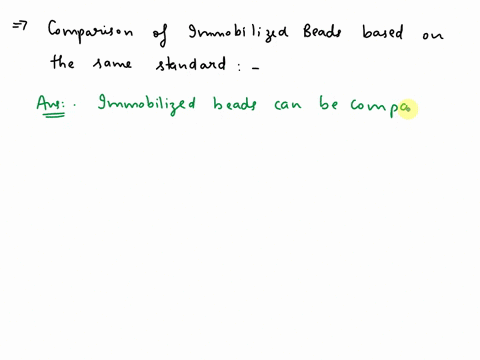 => Comparison of Immobilized Beads based on
the same standard : -
Ans: . Immobilized beads can be compa